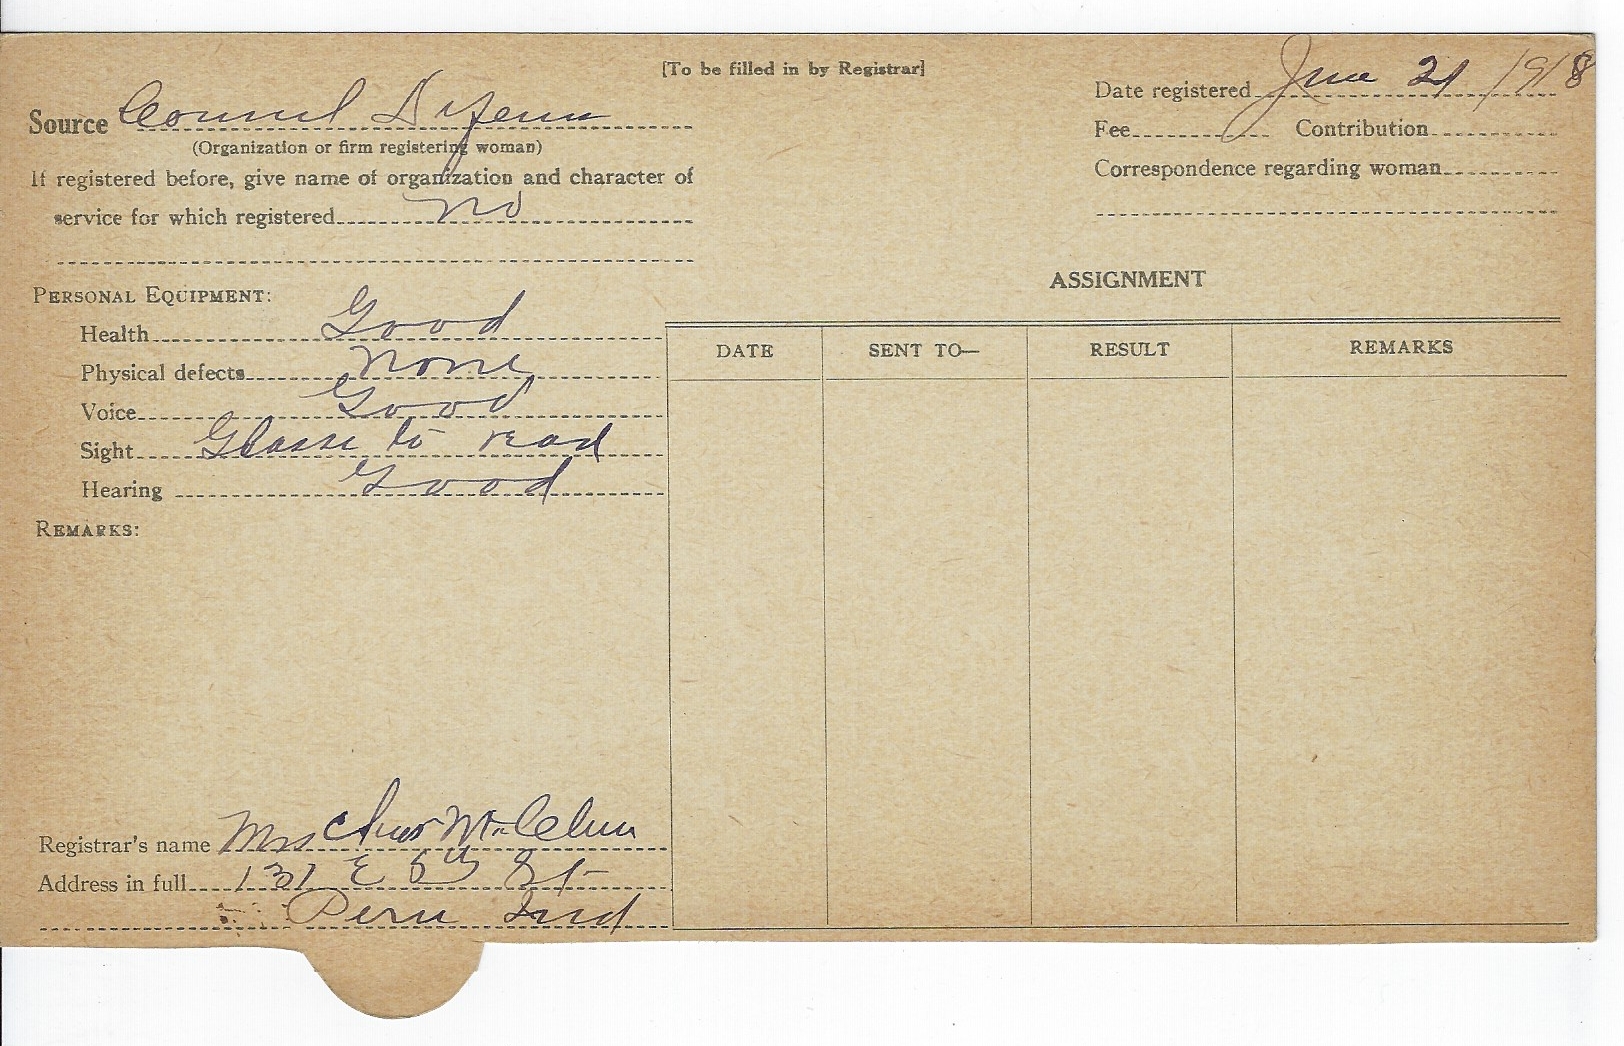 [To be filled in by Registrar]
Source Council Defense
(Organization or firm registering woman)
If registered before, give name of organization and character of
service for which registered no
PERSONAL EQUIPMENT:
Health Good
Physical defects none
Voice Good
Sight Glasse to read
Hearing Good
REMARKS:
Registrar's name Mrs
Address in full 131 E 5th St
Peru Ind
Date registered June 21 1918
Fee Contribution
Correspondence regarding woman
ASSIGNMENT
DATE SENT TO— RESULT REMARKS